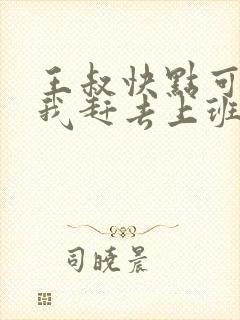 王叔快點可
我赶去上班
司曉晨